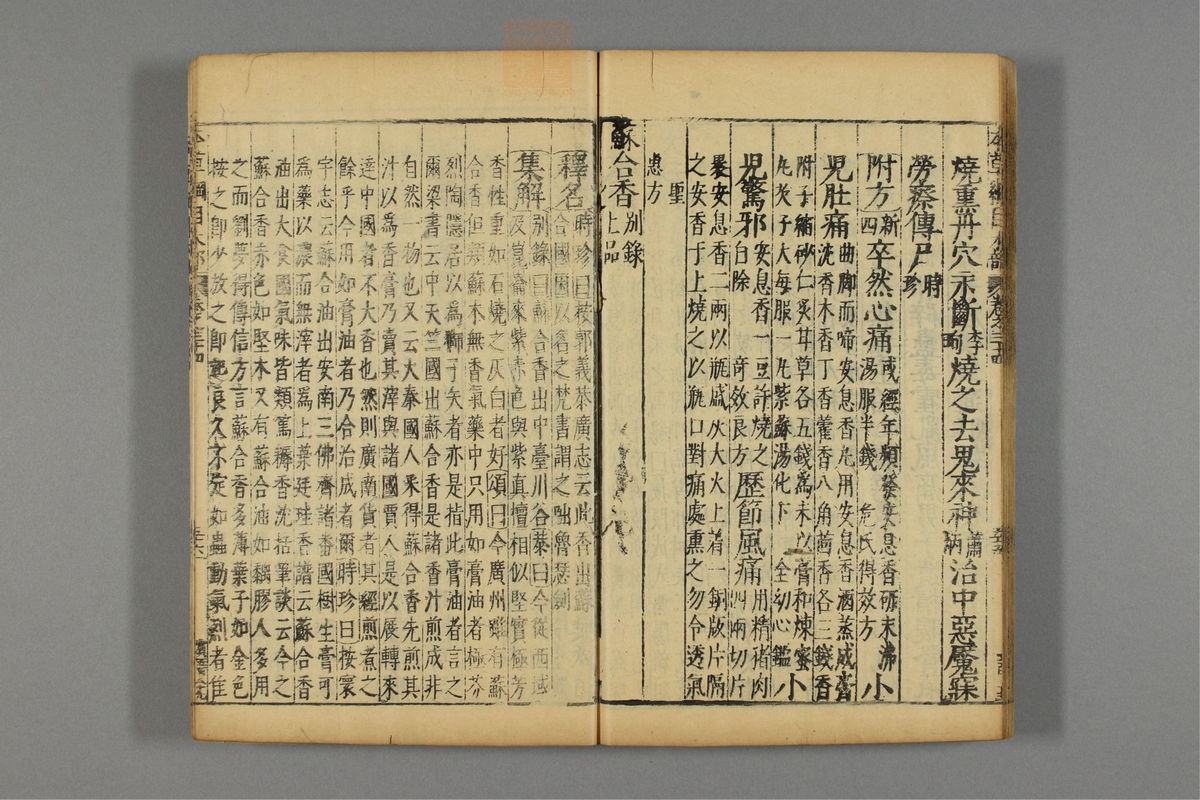 燒熏丹穴永斷李珣燒之去鬼來神蕭炳治中惡魘寐
勞瘵傳尸時珍
附方新四卒然心痛或經年頻發安息香研末沸湯服半錢 危氏得效方小
兒肚痛曲脚而啼安息香丸用安息香酒蒸成膏沈香木香丁香藿香八角茴香各三錢香
附子縮砂仁炙甘草各五錢爲末以膏和煉蜜丸芡子大每服一丸紫蘇湯化下 全幼心鑑小
兒驚邪安息香一豆許燒之自除 奇效良方歷節風痛用精猪肉四兩切片
裹安息香二兩以瓶盛灰大火上着一銅版片隔
之安香于上燒之以瓶口對痛處熏之勿令透氣
聖惠方
蘇合香別錄上品
釋名時珍曰按郭義恭廣志云此香出蘇合國因以名之梵書謂之咄魯瑟劍
集解別錄曰蘇合香出中臺川谷恭曰今從西域及崑崙來紫赤色與紫真檀相似堅實極芳
香性重如石燒之灰白者好頌曰今廣州雖有蘇
合香但類蘇木無香氣藥中只用如膏油者極芬
烈陶隱居以爲獅子矢者亦是指此膏油者言之
爾梁書云中天竺國出蘇合香是諸香汁煎成非
自然一物也又云大秦國人采得蘇合香先煎其
汁以爲香膏乃賣其滓與諸國賈人是以展轉來
達中國者不大香也然則廣南貨者其經煎煮之
餘乎今用如膏油者乃合治成者爾時珍曰按寰
宇志云蘇合油出安南三佛齊諸番國樹生膏可
爲藥以濃而無滓者爲上葉廷珪香譜云蘇合香
油出大食國氣味皆類篤耨香沈括筆談云今之
蘇合香赤色如堅木又有蘇合油如黐膠人多用
之而劉夢得傳信方言蘇合香多薄葉子如金色
按之卽少放之卽起良久不定如蟲動氣烈者佳